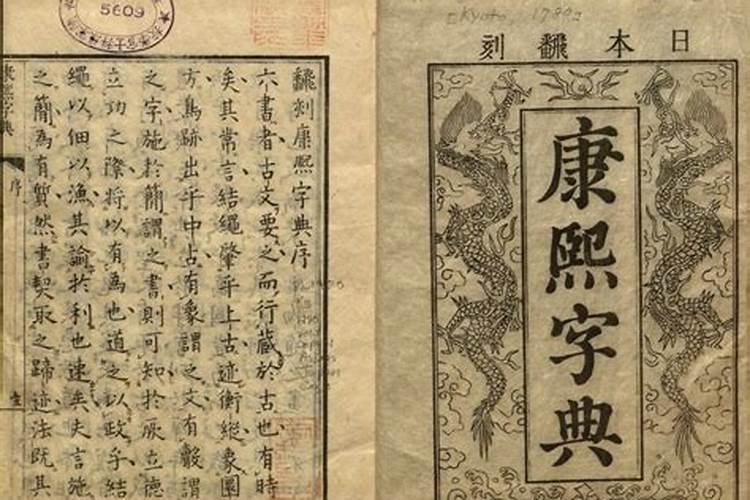 日本飜刻
[Kyoto, 1780]
康熙字典
飜刻康熙字典序
六書者古文要之而行藏於古也有時
矣其常言結繩肇乎上古迹衡縱象圖
方鳥跡出乎中古有象謂之文有謂
之字施於簡謂之書則可知於厥立德
立功之際將以有為也道之以政乎結
繩以佃以漁其諭於利也速矣夫言施
之簡為有質然書契取之蹄迹法既其
康熙字典
序
5609